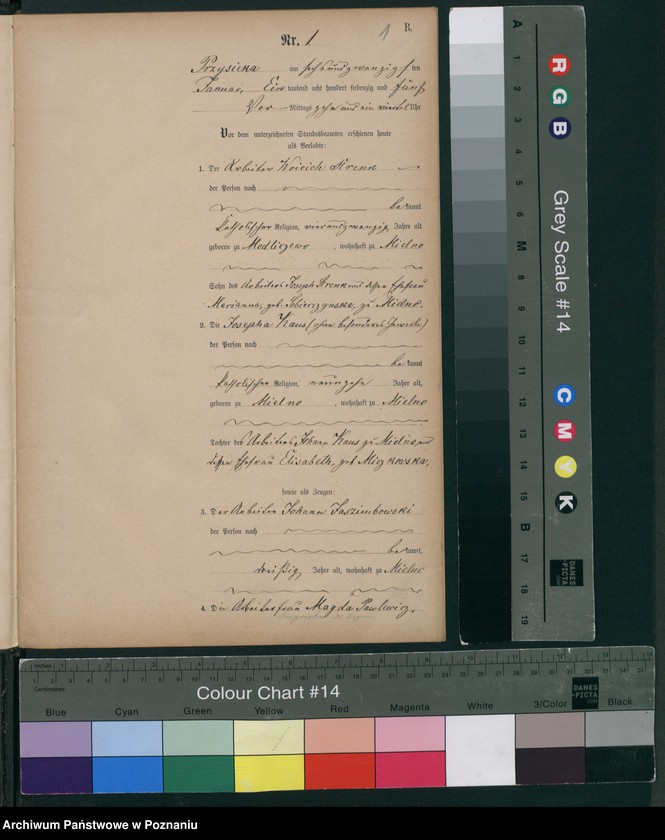 B.
Nr. 1
1
Przysieka am sechsundzwanzigsten
Januar, Ein tausend acht hundert siebenzig und fünf
Vor Mittags zehn und ein viertel Uhr
Vor dem unterzeichneten Standesbeamten erschienen heute
als Verlobte:
1. Der Arbeiter Woicich
der Person nach
bekannt
katholischer Religion, vierundzwanzig Jahre alt
geboren zu Modliszewo, wohnhaft zu Mielno
Sohn des Arbeiters Joseph und dessen Ehefrau
Marianna, geb. zu Mielno.
2. Die Josepha Kaus (ohne besonderes Gewerbe)
der Person nach
bekannt
katholischer Religion, neunzehn Jahre alt,
geboren zu Mielno, wohnhaft zu Mielno
Tochter des Arbeiters Johann Kaus zu Mielno und
dessen Ehefrau Elisabeth, geb.
sowie als Zeugen:
3. Der Arbeiter Johann
der Person nach
bekannt,
dreißig Jahre alt, wohnhaft zu Mielno
4. Die Arbeiterfrau Magda Pawlewicz,
A 1 2 3 4 5 6 M 8 9 10 11 12 13 14 15 B 17 18 19
R
G
B
Grey Scale #14
C
M
Y
K
DANES
-PICTA
.COM
Inches
Centimetres
Colour Chart #14
DANES
-PICTA
.COM
Blue Cyan Green Yellow Red Magenta White 3/Color Black
Archiwum Państwowe w Poznaniu